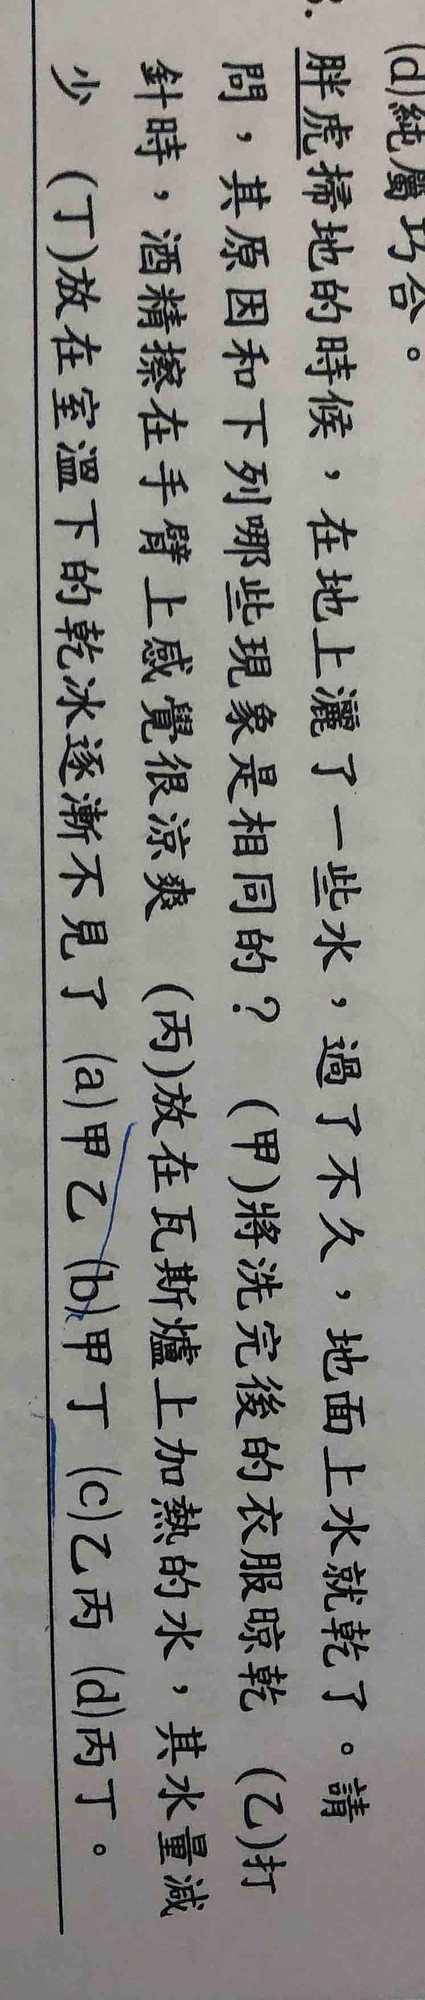 (d)純屬巧合。
3. 胖虎掃地的時候，在地上灑了一些水，過了不久，地面上水就乾了。請
問，其原因和下列哪些現象是相同的？ (甲)將洗完後的衣服晾乾 (乙)打
針時，酒精擦在手臂上感覺很涼爽 (丙)放在瓦斯爐上加熱的水，其水量減
少 (丁)放在室溫下的乾冰逐漸不見了 (a)甲乙 (b)甲丁 (c)乙丙 (d)丙丁。